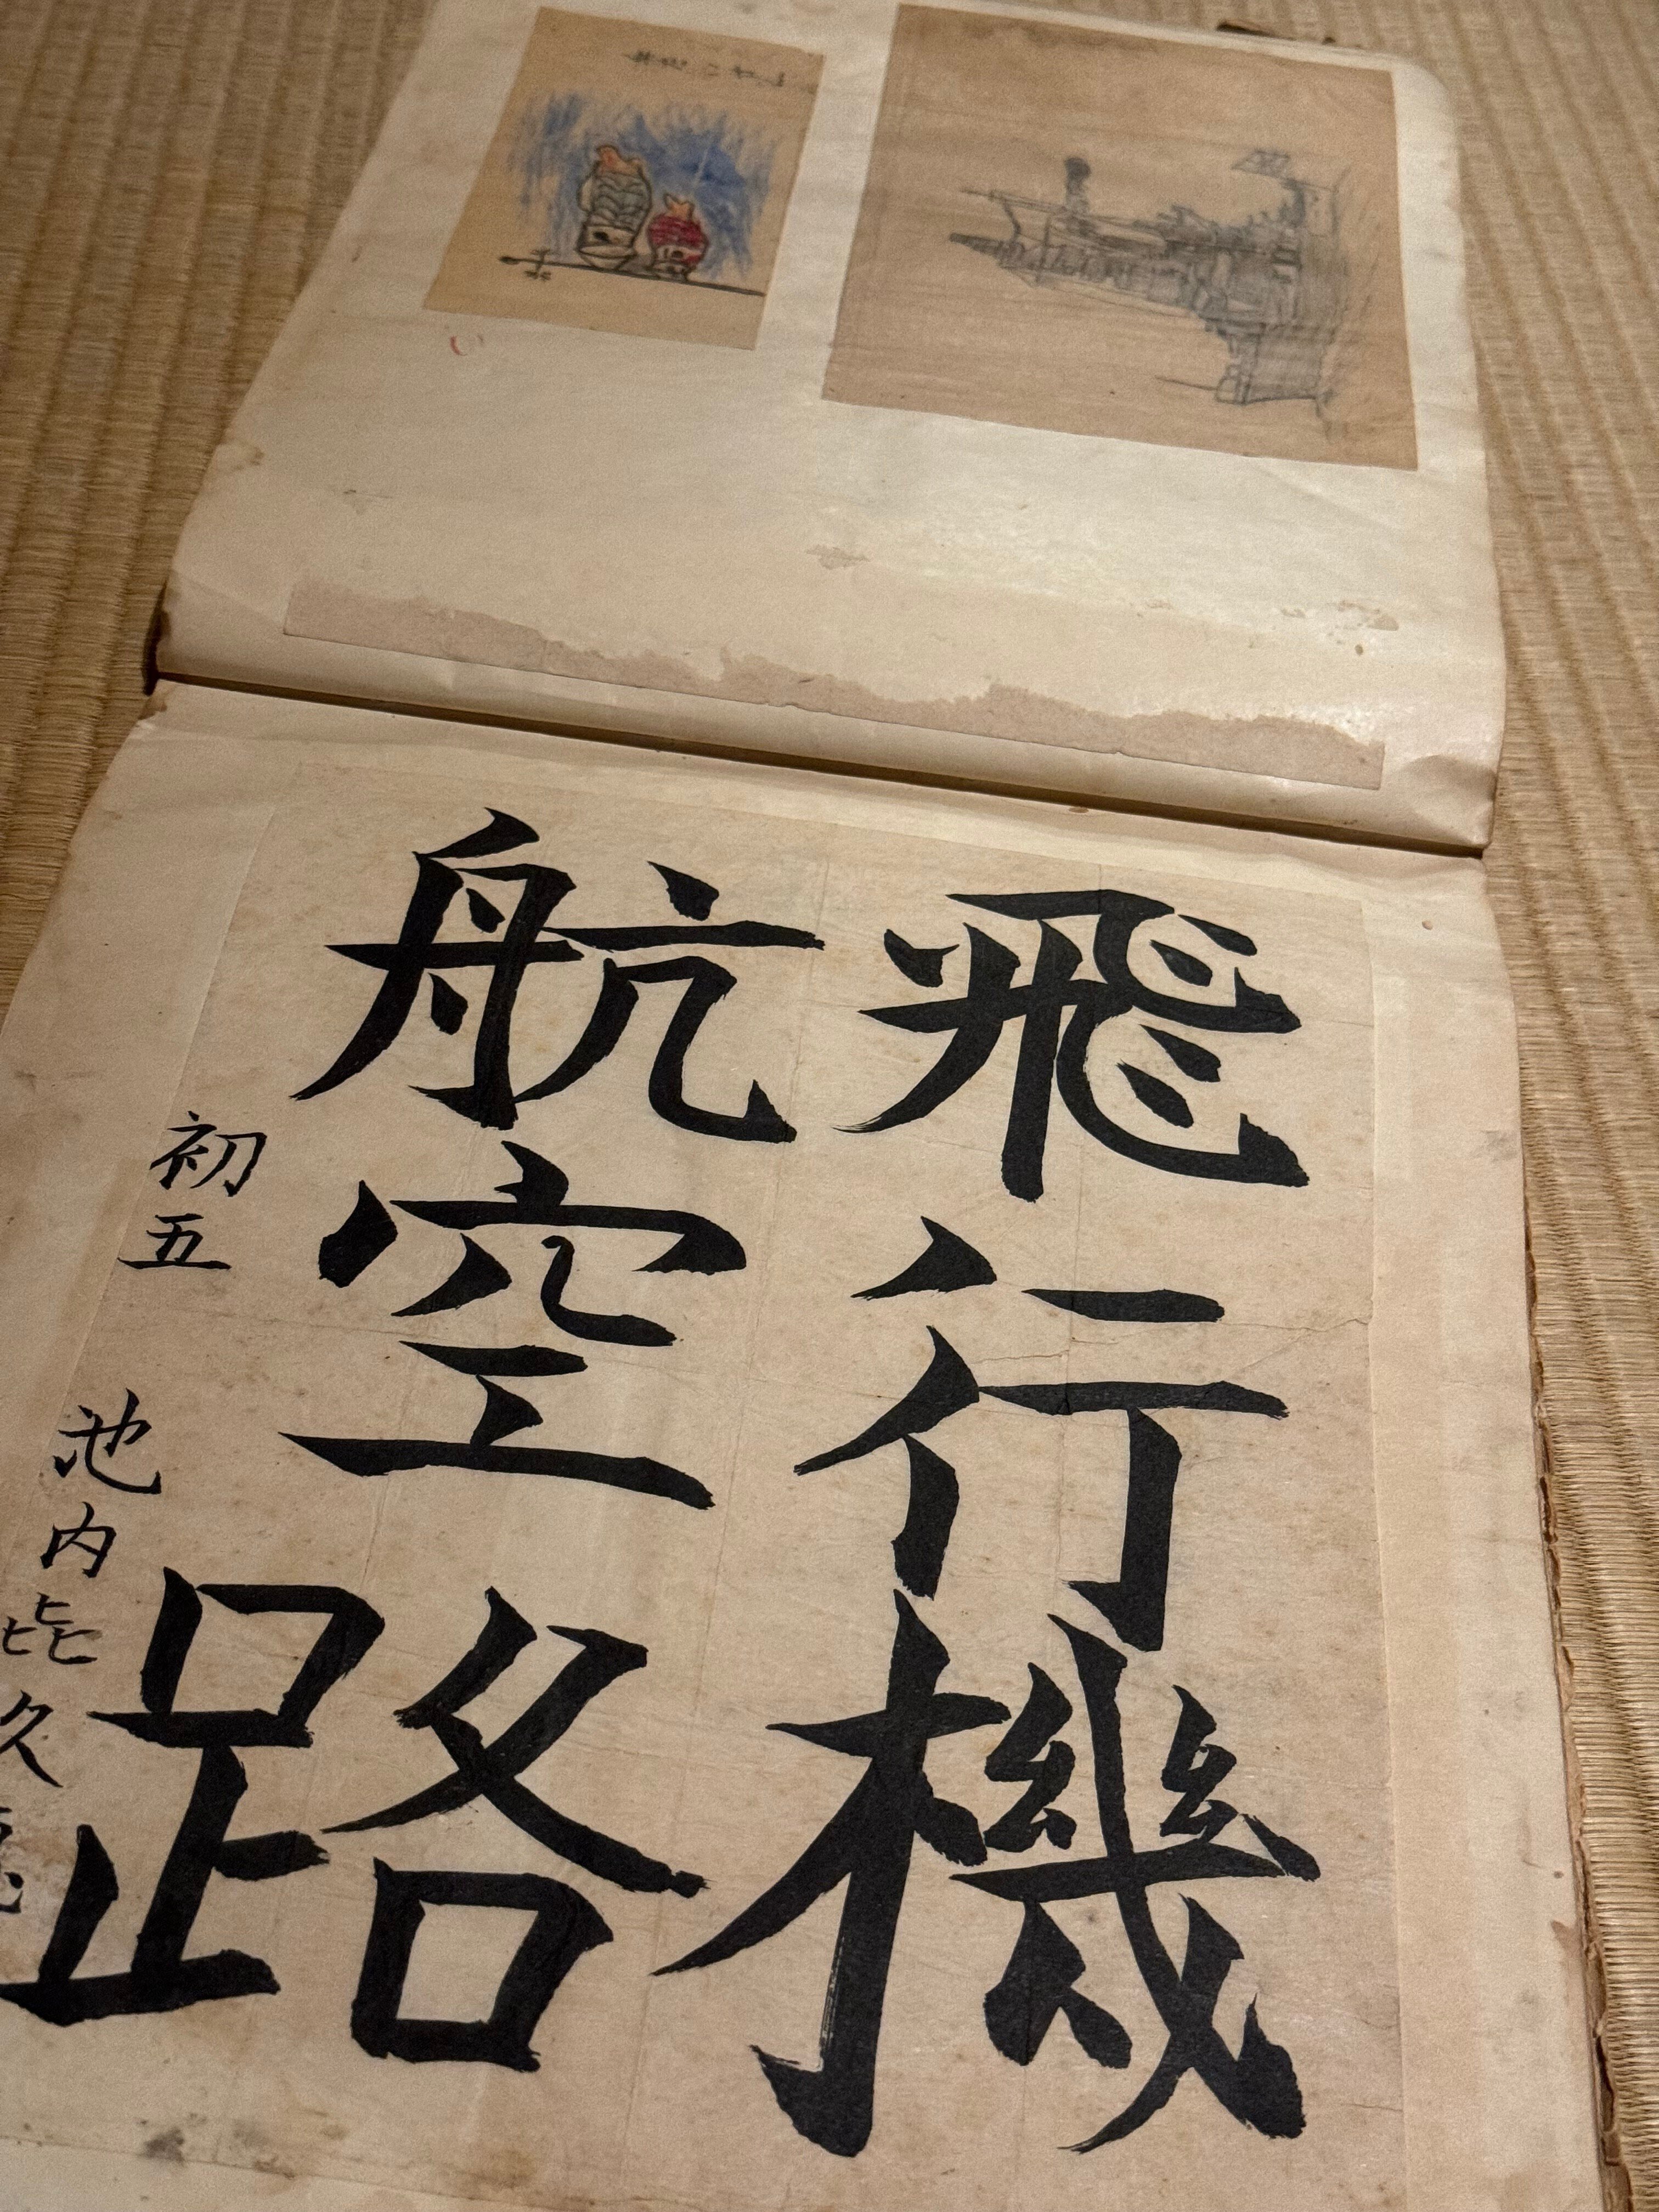 飛行機
航空路
初五
池内毞久